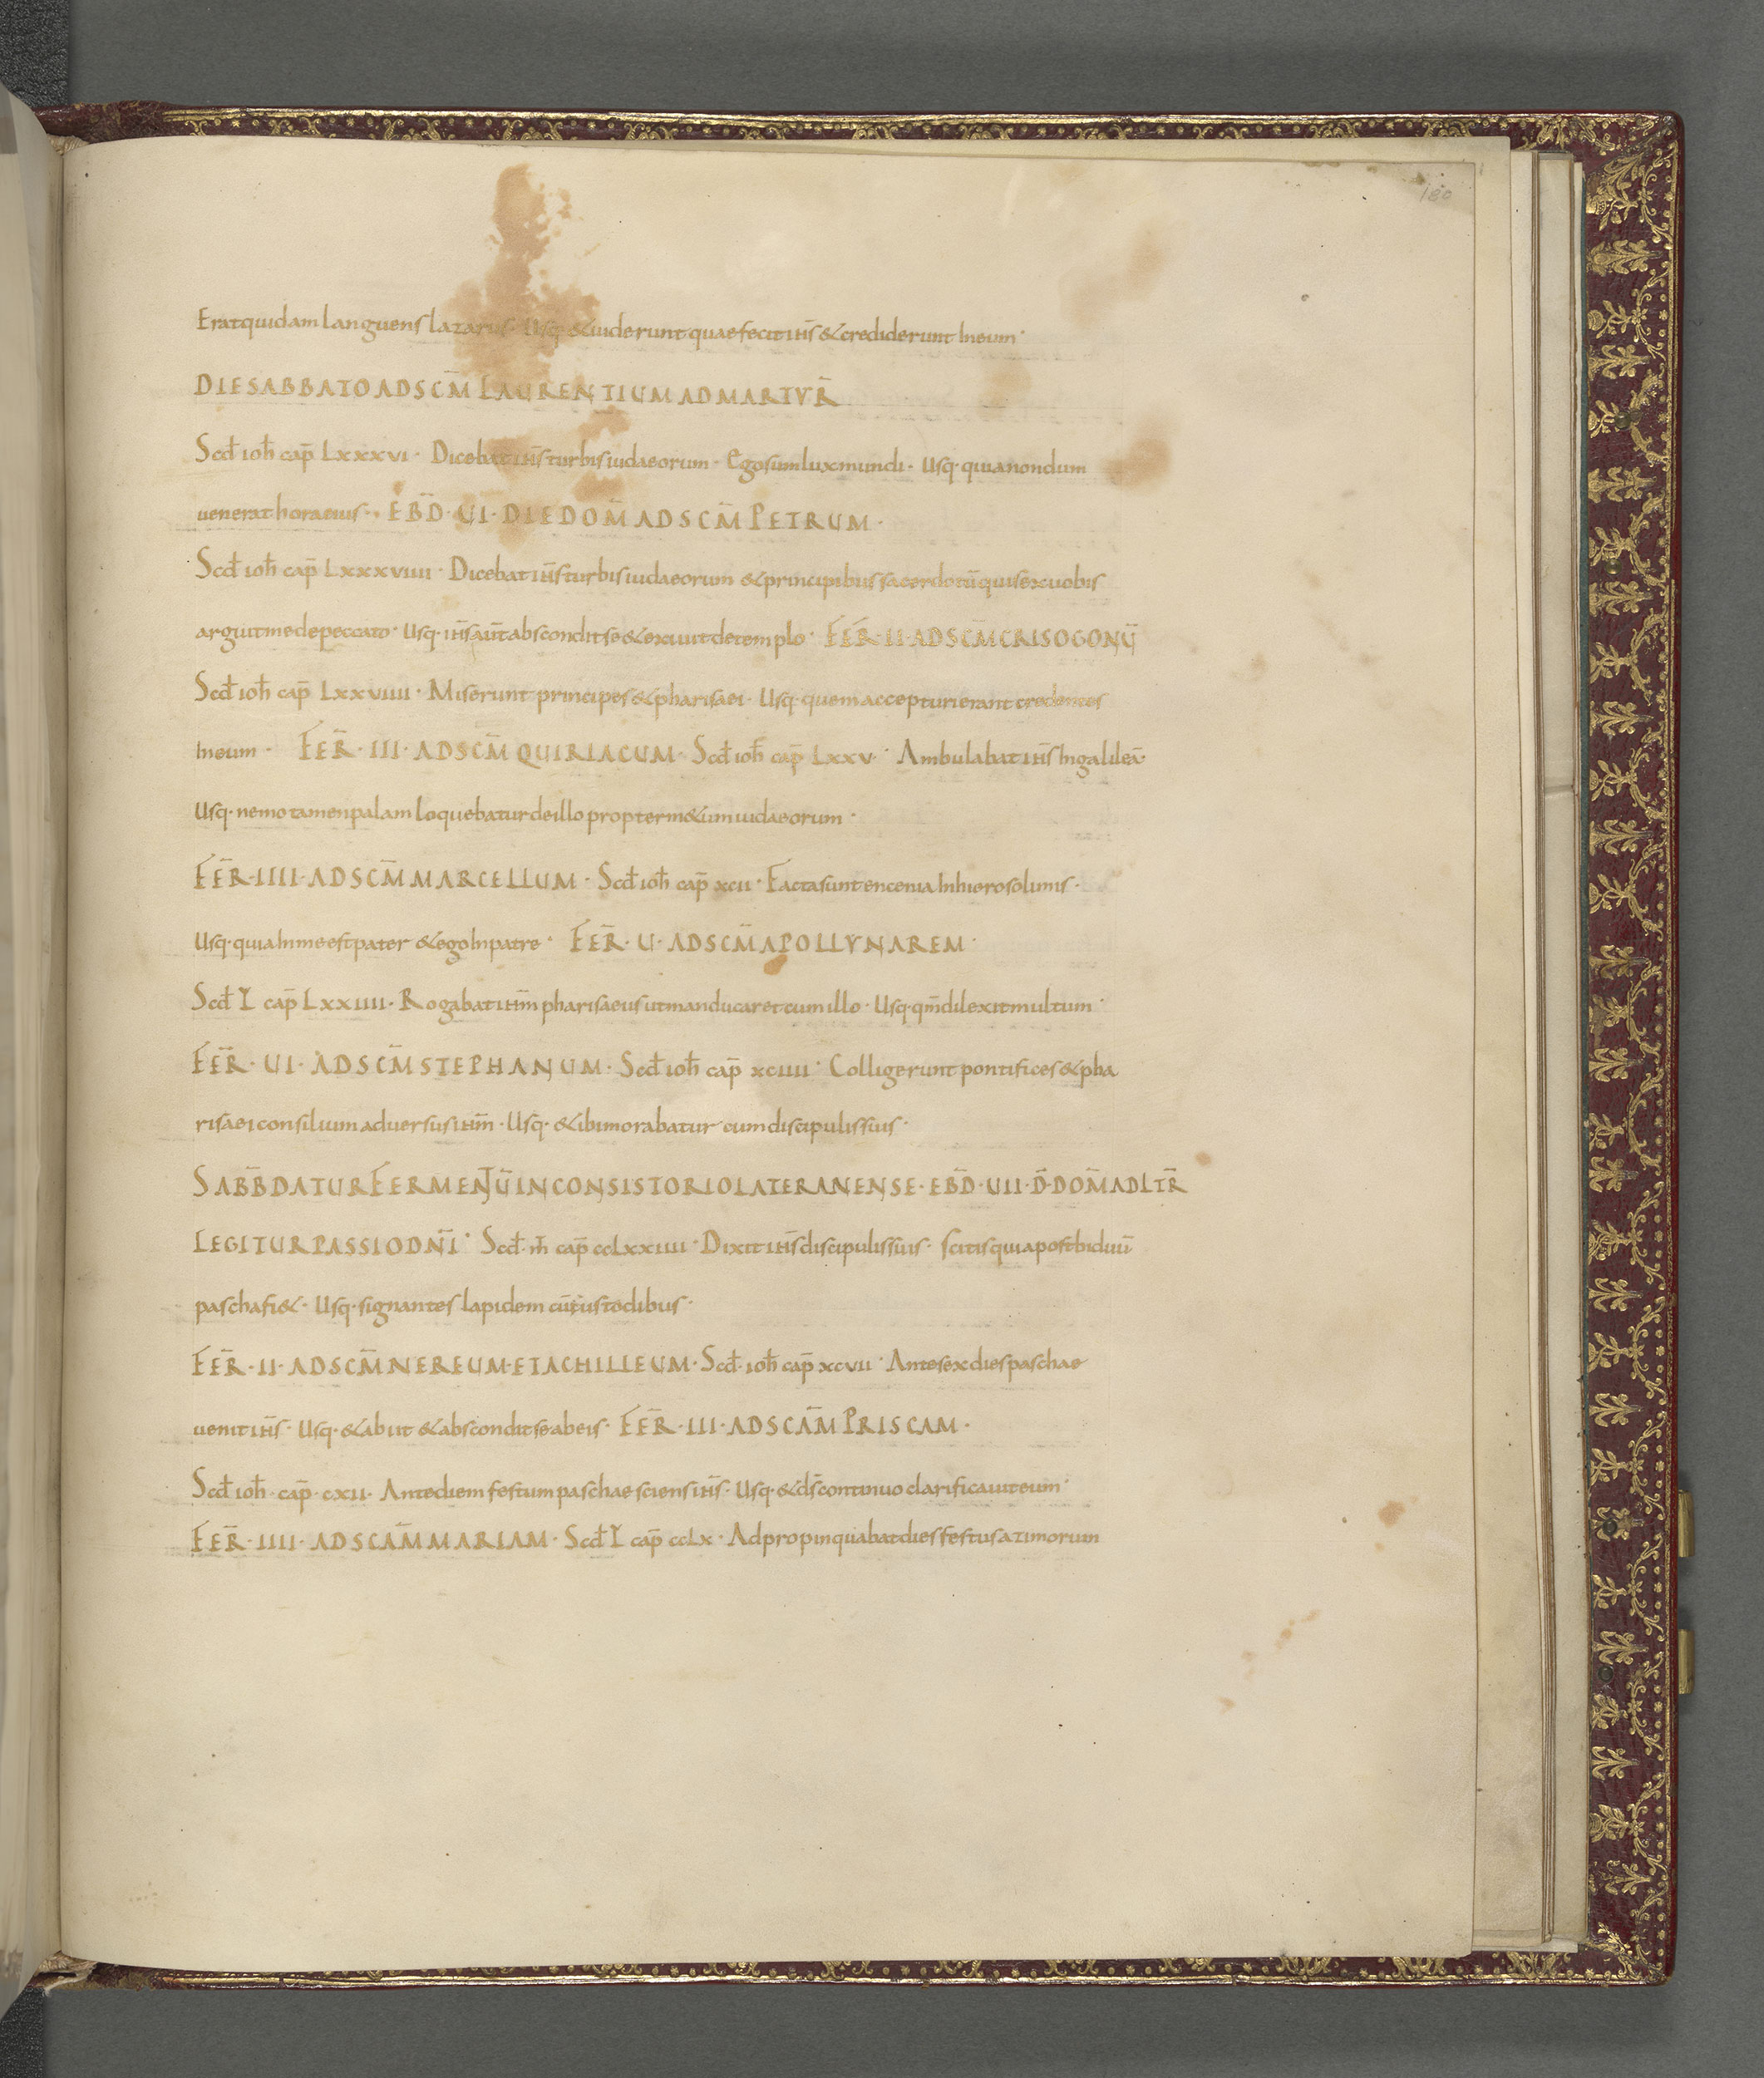 180
Erat quidam languens lazarus· Usq· & uiderunt quae fecit ih̄s & crediderunt In eum·
DIE SABBATO AD SCM̄ LAURENTIUM AD MARTYR̄
Scd̄ ioh̄ cap̄ Lxxxvi· Dicebat ih̄s turbis iudaeorum· Ego sum lux mundi· Usq· quia nondum
uenerat hora eius· EBD̄· UI· DIE DOM̄ AD SCM̄ PETRUM·
Scd̄ ioh̄ cap̄ Lxxxviiii· Dicebat ih̄s turbis iudaeorum & principibus sacerdotū quis ex uobis
arguit me de peccato· Usq· ih̄s aūt abscondit se & exiuit de templo· FER̄· II· AD SCM̄ CRISOGONŪ
Scd̄ ioh̄ cap̄ Lxxviiii· Miserunt principes & pharisaei· Usq· quem accepturi erant credentes
In eum· FER̄· III· AD SCM̄ QUIRIACUM· Scd̄ ioh̄ cap̄ Lxxv· Ambulabat ih̄s In galileā·
Usq· nemo tamen palam loquebatur de illo propter m&um iudaeorum·
FER̄· IIII· AD SCM̄ MARCELLUM· Scd̄ ioh̄ cap̄ xcii· Facta sunt encenia In hierosolimis·
Usq· quia In me est pater & ego In patre· FER̄· U· AD SCM̄ APOLLYNAREM·
Scd̄ L̄ cap̄ Lxxiiii· Rogabat ih̄m pharisaeus ut manducaret cum illo· Usq· qm̄ dilexit multum·
FER̄· UI· AD SCM̄ STEPHANUM· Scd̄ ioh̄ cap̄ xciiii· Colligerunt pontifices & pha
risaei consilium aduersus ih̄m· Usq· & ibi morabatur cum discipulis suis·
SABB̄ DATUR FERMENTŪ IN CONSISTORIO LATERANENSE· EBD̄· UII· D̄· DOM̄ AD LTR̄
LEGITUR PASSIO DN̄I· Scd̄· m̄ cap̄ ccLxxiiii· Dixit ih̄s discipulis suis· scitis quia post biduū
pascha fi&· Usq· signantes lapidem cū custodibus·
FER̄· II· AD SCM̄ NEREUM· ET ACHILLEUM· Scd̄· ioh̄ cap̄ xcvii· Ante sex dies paschae
uenit ih̄s· Usq· & abiit & abscondit se ab eis· FER̄· III· AD SCAM̄ PRISCAM·
Scd̄ ioh̄· cap̄· cxii· Ante diem festum paschae sciens ih̄s· Usq· & dš continuo clarificauit eum·
FER̄· IIII· AD SCAM̄ MARIAM· Scd̄ L̄ cap̄ ccLx· Adpropinquabat dies festus azimorum